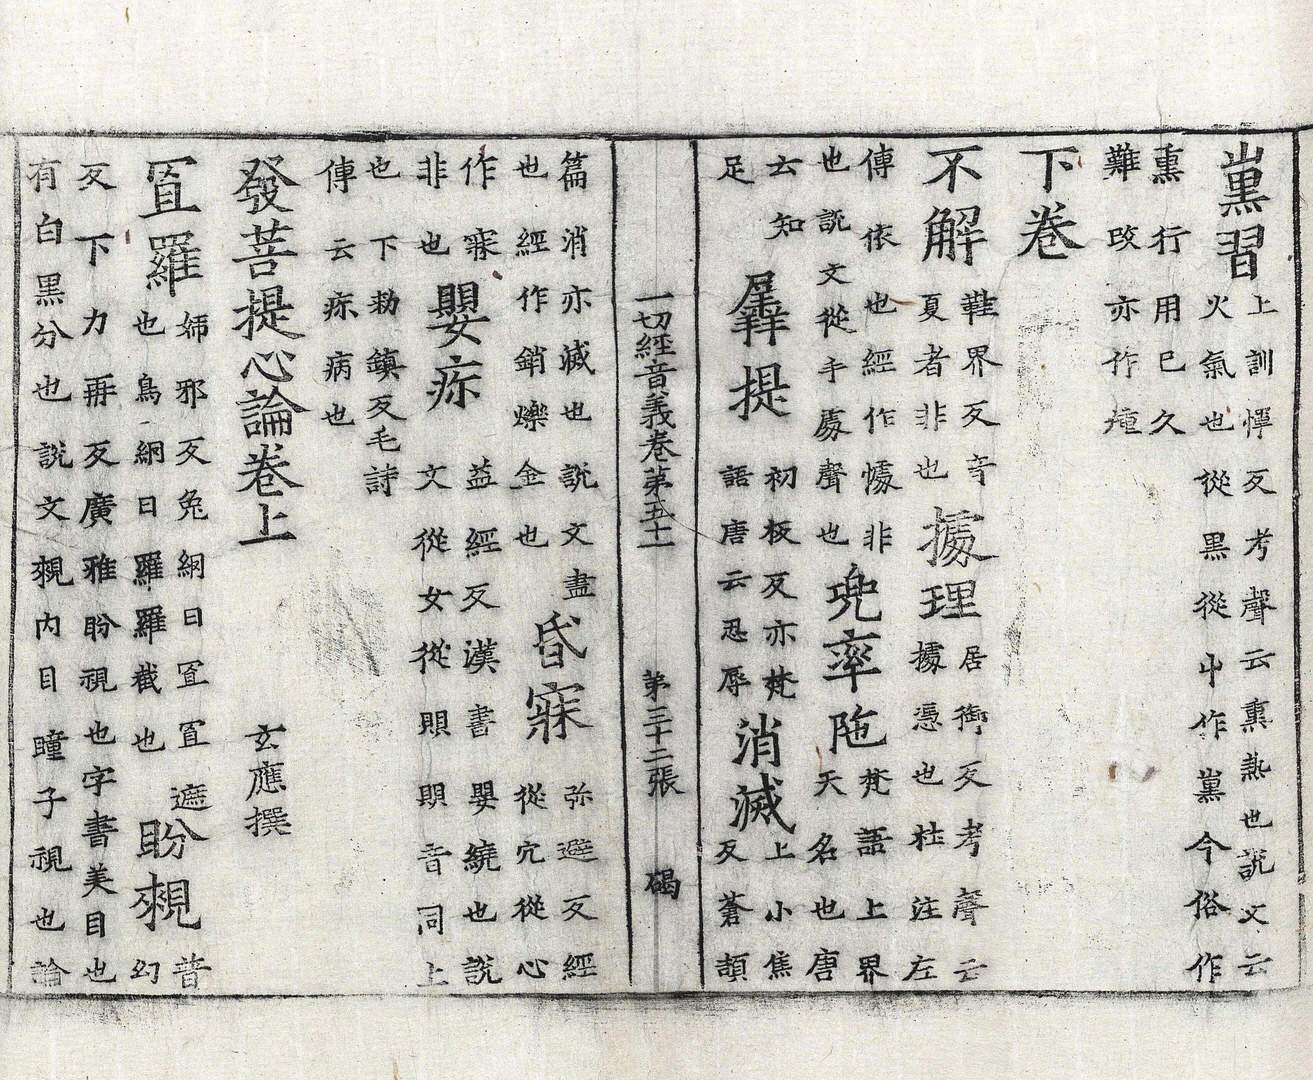 熏習
上訓惲反考聲云熏熱也說文云
火氣也從黒從屮作熏今俗作
熏行用已久
難改亦作
下卷
不解
鞋界反寺
夏者非也
據理
居御反考聲云
據憑也杜注左
傳依也經作㯫非
也說文從手豦聲也
兜率陁
梵語上界
天名也唐
云知
足
羼提
初板反亦梵
語唐云忍辱
消滅
上小焦
反蒼頡
一切經音義卷第五十一 第三十二張 碣
篇消亦滅也說文盡
也經作銷爍金也
昏寐
弥避反經
從穴從心
作寐
非也
嬰疢
益經反漢書嬰繞也說
文從女從賏賏音同上
也下勑鎮反毛詩
傳云疢病也
發菩提心論卷上 玄應撰
罝羅
姉邪反兔網曰罝罝遮
也鳥網曰羅羅截也
盼䚅
普
幻
反下力再反廣雅盼視也字書美目也
有白黒分也說文䚅內目瞳子視也論